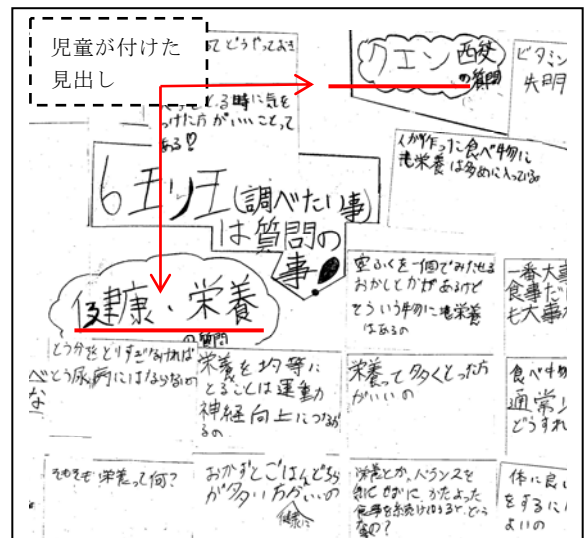 児童が付けた
見出し
てどうやっておき
とる時に気を
つけた方がいいことって
ある?
クエン酸
の質問
ビタミン
失明
人が作った食べ物に
も栄養は多めに入っている
(調べたい事)
は質問の
事!
健康・栄養
の質問
空ふくを一個でみたせる
おかしとかがあるけど
そういう物にも栄養
はあるの
一番大事
食事だ
も大事
とう分をとりすぎなければ
とう尿病にはならないの
栄養を均等に
とることは運動
神経向上につながる
るの
栄養って多くとった方
がいいの
食べ物
通常
どうすれ
べ
な
そもそも栄養って何?
おかずとごはんどちら
が多い方がいいの
健康に
栄養とか、バランスを
気にせずに、かたよった
食事を続けると、どう
なるの?
体に良い
をするに
よいの